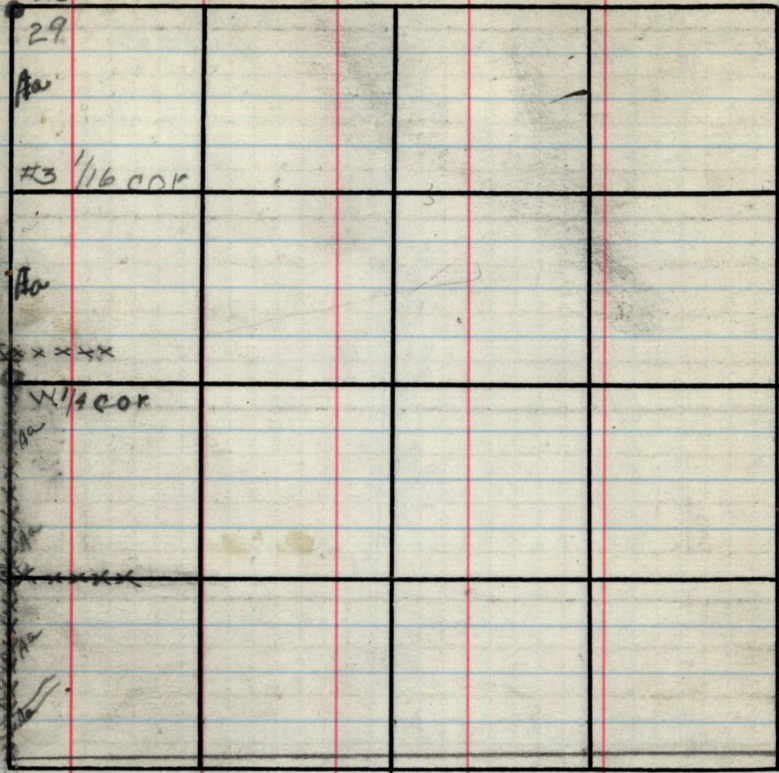 29
Aa
#3 1/16 cor
Aa
x x x x x x
W 1/4 cor
Aa
Aa
x x x x x x
Aa
Aa